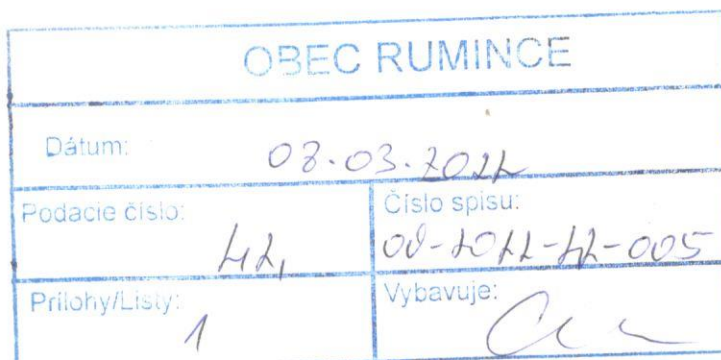 OBEC RUMINCE
Dátum: 08.03.2022
Podacie číslo:
Číslo spisu:
Prílohy/Listy: 1
Vybavuje: